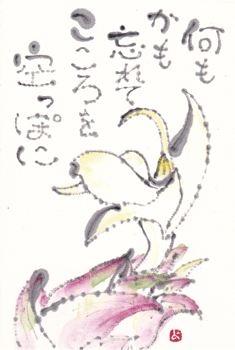 何も
かも
忘れて
こころを
空っぽに